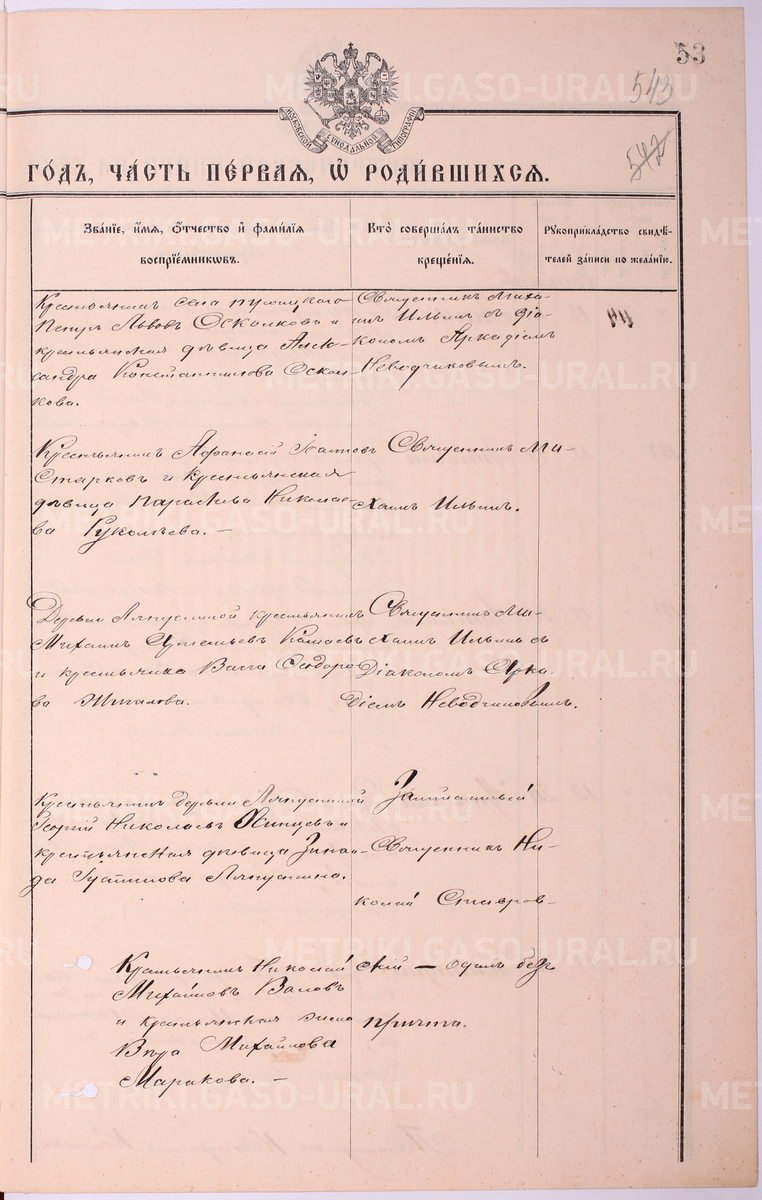 53
543
542
МОСКОВСКОЙ СѴНОДАЛЬНОЙ ТИПОГРАФІИ
ГОДЪ, ЧАСТЬ ПЕРВАЯ, Ѡ РОДИВШИХСЯ.
Званіе, имя, отчество и фамилія воспріемниковъ.
Кто совершалъ таинство крещенія.
Рукоприкладство свидѣтелей записи по желанію.
Крестьянинъ села
Петръ Львовъ Осколковъ и
крестьянская дѣвица Алек-
сандра Константинова Оскол-
кова.
Священникъ Миха-
илъ Ильинъ съ діа-
кономъ Аркадіемъ
Неводчиковымъ.
Крестьянинъ Афанасій
Старковъ и крестьянская
дѣвица Параскева Николае-
ва
Священникъ Ми-
хаилъ Ильинъ.
Деревни Ляпустиной крестьянинъ
Михаилъ
и крестьянка Васса Ѳеодоро-
ва
Священникъ Ми-
хаилъ Ильинъ съ
Діакономъ Арка-
діемъ Неводчиковымъ.
Крестьянинъ деревни Ляпустиной
Георгій Николаевъ
крестьянская дѣвица Зинаи-
да Ляпустина.
Заштатный
Священникъ Ни-
колай Ставров-
скій — одинъ безъ
причта.
Крестьянинъ Николай
Михайловъ
и крестьянская жена
Вѣра Михайлова
Маракова. —
METRIKI.GASO-URAL.RU